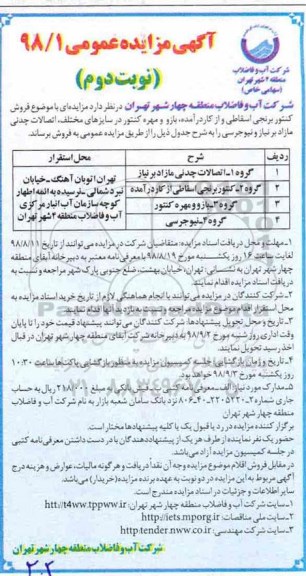 آگهی مزایده عمومی ۹۸/۱
(نوبت دوم)
شرکت آب و فاضلاب
منطقه ۴ شهر تهران
(سهامی خاص)
شرکت آب و فاضلاب منطقه چهار شهر تهران در نظر دارد مزایده‌ای با موضوع فروش
کنتور برنجی اسقاطی و از کار درآمده، بازو و مهره کنتور در سایزهای مختلف، اتصالات چدنی
مازاد بر نیاز و نیوجرسی را به شرح جدول ذیل را از طریق مزایده عمومی به فروش برساند.
ردیف شرح محل استقرار
۱ گروه ۱-اتصالات چدنی مازاد بر نیاز
۲ گروه ۲-کنتور برنجی اسقاطی از کار درآمده
۳ گروه ۳-بازو و مهره کنتور
۴ گروه ۴-نیوجرسی
تهران اتوبان آهنگ-خیابان
نبرد شمالی-نرسیده به ائمه اطهار
کوچه سازمان آب انبار مرکزی
آب و فاضلاب منطقه ۴ شهر تهران
۱-مهلت و محل دریافت اسناد مزایده: متقاضیان شرکت در مزایده می توانند از تاریخ ۹۸/۸/۱۱
لغایت ساعت ۱۶ روز یکشنبه مورخ ۹۸/۸/۱۹ با معرفی نامه معتبر به دبیرخانه آبفای منطقه
چهار شهر تهران به نشانی: تهران، خیابان بهشت، ضلع جنوبی پارک شهر مراجعه و نسبت به
دریافت اسناد مزایده اقدام نمایند.
۲-شرکت کنندگان در مزایده می توانند با انجام هماهنگی لازم از تاریخ خرید اسناد مزایده به
محل استقرار اقلام موضوع مزایده مراجعه و نسبت به بازدید آنها اقدام نمایند.
۳-تاریخ و محل تحویل پیشنهادها: شرکت کنندگان می توانند پیشنهاد قیمت خود را تا پایان
وقت اداری روز شنبه مورخ ۹۸/۹/۲ به دبیرخانه شرکت آبفای منطقه چهار شهر تهران در قبال
اخذ رسید تحویل نمایند.
۴-تاریخ و زمان بازگشایی: جلسه کمیسیون مزایده به منظور بازگشایی پاکت‌ها ساعت ۱۰:۳۰
روز یکشنبه مورخ ۹۸/۹/۳ خواهد بود.
۵-مدارک مورد نیاز: الف-معرفی نامه کتبی ب-فیش بانکی به مبلغ ۲۱۸/۰۰۰ ریال به حساب
نزد بانک سامان شعبه بازار به نام شرکت آب و فاضلاب
منطقه چهار شهر تهران
برگزار کننده مزایده در رد یا قبول یک یا کلیه پیشنهادها مختار است.
حضور یک نفر نماینده از طرف هر یک از پیشنهاددهندگان با در دست داشتن معرفی نامه کتبی
در جلسه کمیسیون مزایده آزاد می‌باشد.
در مقابل فروش اقلام موضوع مزایده وجه آن نقداً دریافت و هر گونه مالیات، عوارض و هزینه درج
آگهی مربوط به این مزایده در دو نوبت به عهده برنده مزایده (خریدار) می‌باشد.
سایر اطلاعات و جزئیات در اسناد مزایده مندرج است.
۱-سایت شرکت آب و فاضلاب منطقه چهار شهر تهران:
۲-سایت ملی مناقصات: http://iets.mporg.ir
۳-سایت شرکت مهندسی:
شرکت آب و فاضلاب منطقه چهار شهر تهران